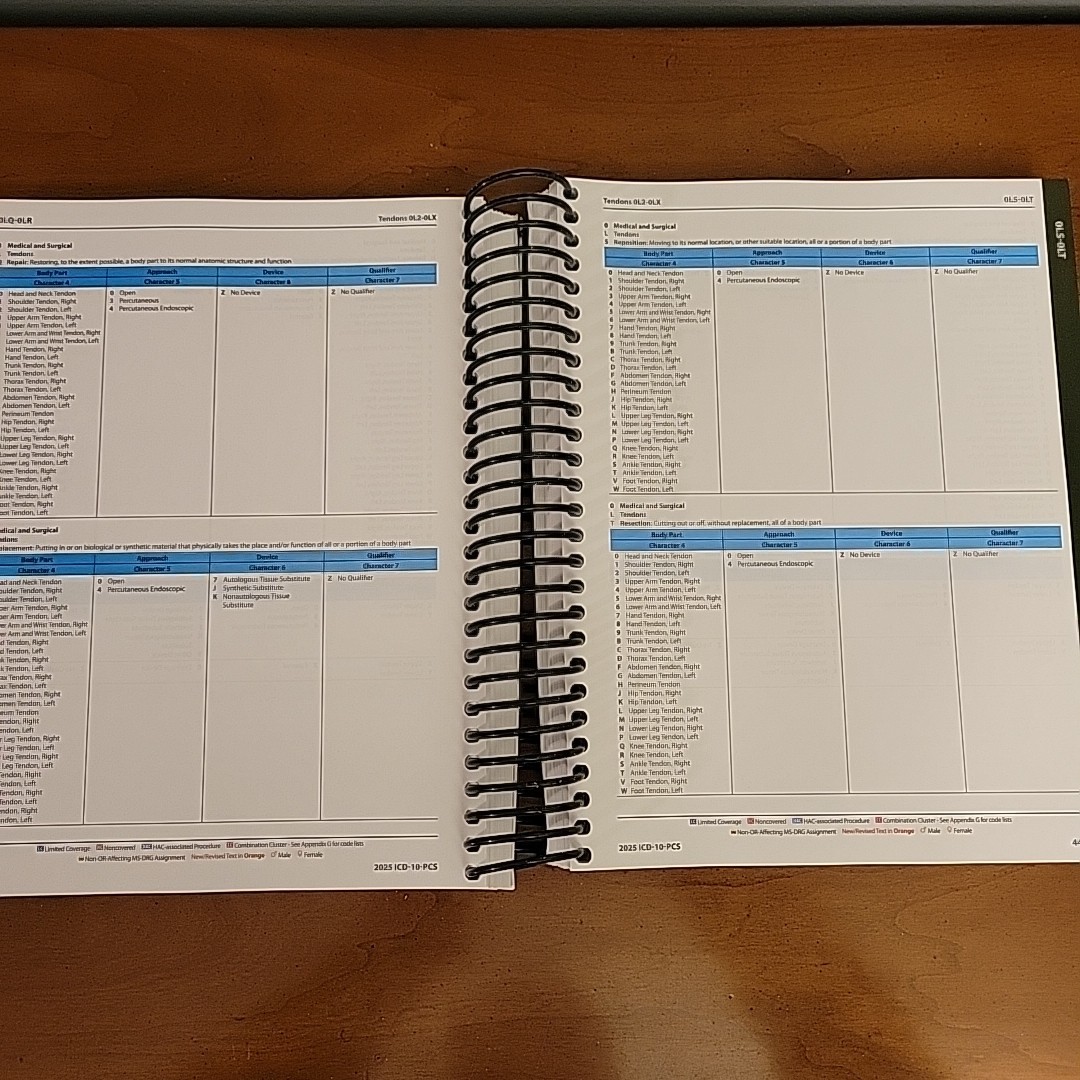 0LQ-0LR
Tendons 0L2-0LX
Medical and Surgical
Tendons
Repair: Restoring, to the extent possible, a body part to its normal anatomic structure and function
Body Part
Character 4
Approach
Character 5
Device
Character 6
Qualifier
Character 7
Head and Neck Tendon
Shoulder Tendon, Right
Shoulder Tendon, Left
Upper Arm Tendon, Right
Upper Arm Tendon, Left
Lower Arm and Wrist Tendon, Right
Lower Arm and Wrist Tendon, Left
Hand Tendon, Right
Hand Tendon, Left
Trunk Tendon, Right
Trunk Tendon, Left
Thorax Tendon, Right
Thorax Tendon, Left
Abdomen Tendon, Right
Abdomen Tendon, Left
Perineum Tendon
Hip Tendon, Right
Hip Tendon, Left
Upper Leg Tendon, Right
Upper Leg Tendon, Left
Lower Leg Tendon, Right
Lower Leg Tendon, Left
Knee Tendon, Right
Knee Tendon, Left
Ankle Tendon, Right
Ankle Tendon, Left
Foot Tendon, Right
Foot Tendon, Left
0 Open
3 Percutaneous
4 Percutaneous Endoscopic
Z No Device
Z No Qualifier
dical and Surgical
ndons
placement: Putting in or on biological or synthetic material that physically takes the place and/or function of all or a portion of a body part
Body Part
Character 4
Approach
Character 5
Device
Character 6
Qualifier
Character 7
ad and Neck Tendon
oulder Tendon, Right
oulder Tendon, Left
per Arm Tendon, Right
per Arm Tendon, Left
er Arm and Wrist Tendon, Right
er Arm and Wrist Tendon, Left
d Tendon, Right
d Tendon, Left
k Tendon, Right
k Tendon, Left
ax Tendon, Right
ax Tendon, Left
omen Tendon, Right
omen Tendon, Left
eum Tendon
endon, Right
endon, Left
r Leg Tendon, Right
r Leg Tendon, Left
Leg Tendon, Right
Leg Tendon, Left
Tendon, Right
Tendon, Left
Tendon, Right
Tendon, Left
ndon, Right
ndon, Left
0 Open
4 Percutaneous Endoscopic
7 Autologous Tissue Substitute
J Synthetic Substitute
K Nonautologous Tissue
Substitute
Z No Qualifier
LC Limited Coverage NC Noncovered HAC HAC-associated Procedure CC Combination Cluster - See Appendix G for code lists
Non-OR-Affecting MS-DRG Assignment New/Revised Text in Orange ♂ Male ♀ Female
2025 ICD-10-PCS
Tendons 0L2-0LX
0LS-0LT
0 Medical and Surgical
L Tendons
S Reposition: Moving to its normal location, or other suitable location, all or a portion of a body part
Body Part
Character 4
Approach
Character 5
Device
Character 6
Qualifier
Character 7
0 Head and Neck Tendon
1 Shoulder Tendon, Right
2 Shoulder Tendon, Left
3 Upper Arm Tendon, Right
4 Upper Arm Tendon, Left
5 Lower Arm and Wrist Tendon, Right
6 Lower Arm and Wrist Tendon, Left
7 Hand Tendon, Right
8 Hand Tendon, Left
9 Trunk Tendon, Right
B Trunk Tendon, Left
C Thorax Tendon, Right
D Thorax Tendon, Left
F Abdomen Tendon, Right
G Abdomen Tendon, Left
H Perineum Tendon
J Hip Tendon, Right
K Hip Tendon, Left
L Upper Leg Tendon, Right
M Upper Leg Tendon, Left
N Lower Leg Tendon, Right
P Lower Leg Tendon, Left
Q Knee Tendon, Right
R Knee Tendon, Left
S Ankle Tendon, Right
T Ankle Tendon, Left
V Foot Tendon, Right
W Foot Tendon, Left
0 Open
4 Percutaneous Endoscopic
Z No Device
Z No Qualifier
0 Medical and Surgical
L Tendons
T Resection: Cutting out or off, without replacement, all of a body part
Body Part
Character 4
Approach
Character 5
Device
Character 6
Qualifier
Character 7
0 Head and Neck Tendon
1 Shoulder Tendon, Right
2 Shoulder Tendon, Left
3 Upper Arm Tendon, Right
4 Upper Arm Tendon, Left
5 Lower Arm and Wrist Tendon, Right
6 Lower Arm and Wrist Tendon, Left
7 Hand Tendon, Right
8 Hand Tendon, Left
9 Trunk Tendon, Right
B Trunk Tendon, Left
C Thorax Tendon, Right
D Thorax Tendon, Left
F Abdomen Tendon, Right
G Abdomen Tendon, Left
H Perineum Tendon
J Hip Tendon, Right
K Hip Tendon, Left
L Upper Leg Tendon, Right
M Upper Leg Tendon, Left
N Lower Leg Tendon, Right
P Lower Leg Tendon, Left
Q Knee Tendon, Right
R Knee Tendon, Left
S Ankle Tendon, Right
T Ankle Tendon, Left
V Foot Tendon, Right
W Foot Tendon, Left
0 Open
4 Percutaneous Endoscopic
Z No Device
Z No Qualifier
LC Limited Coverage NC Noncovered HAC HAC-associated Procedure CC Combination Cluster - See Appendix G for code lists
Non-OR-Affecting MS-DRG Assignment New/Revised Text in Orange ♂ Male ♀ Female
2025 ICD-10-PCS
0LS-0LT